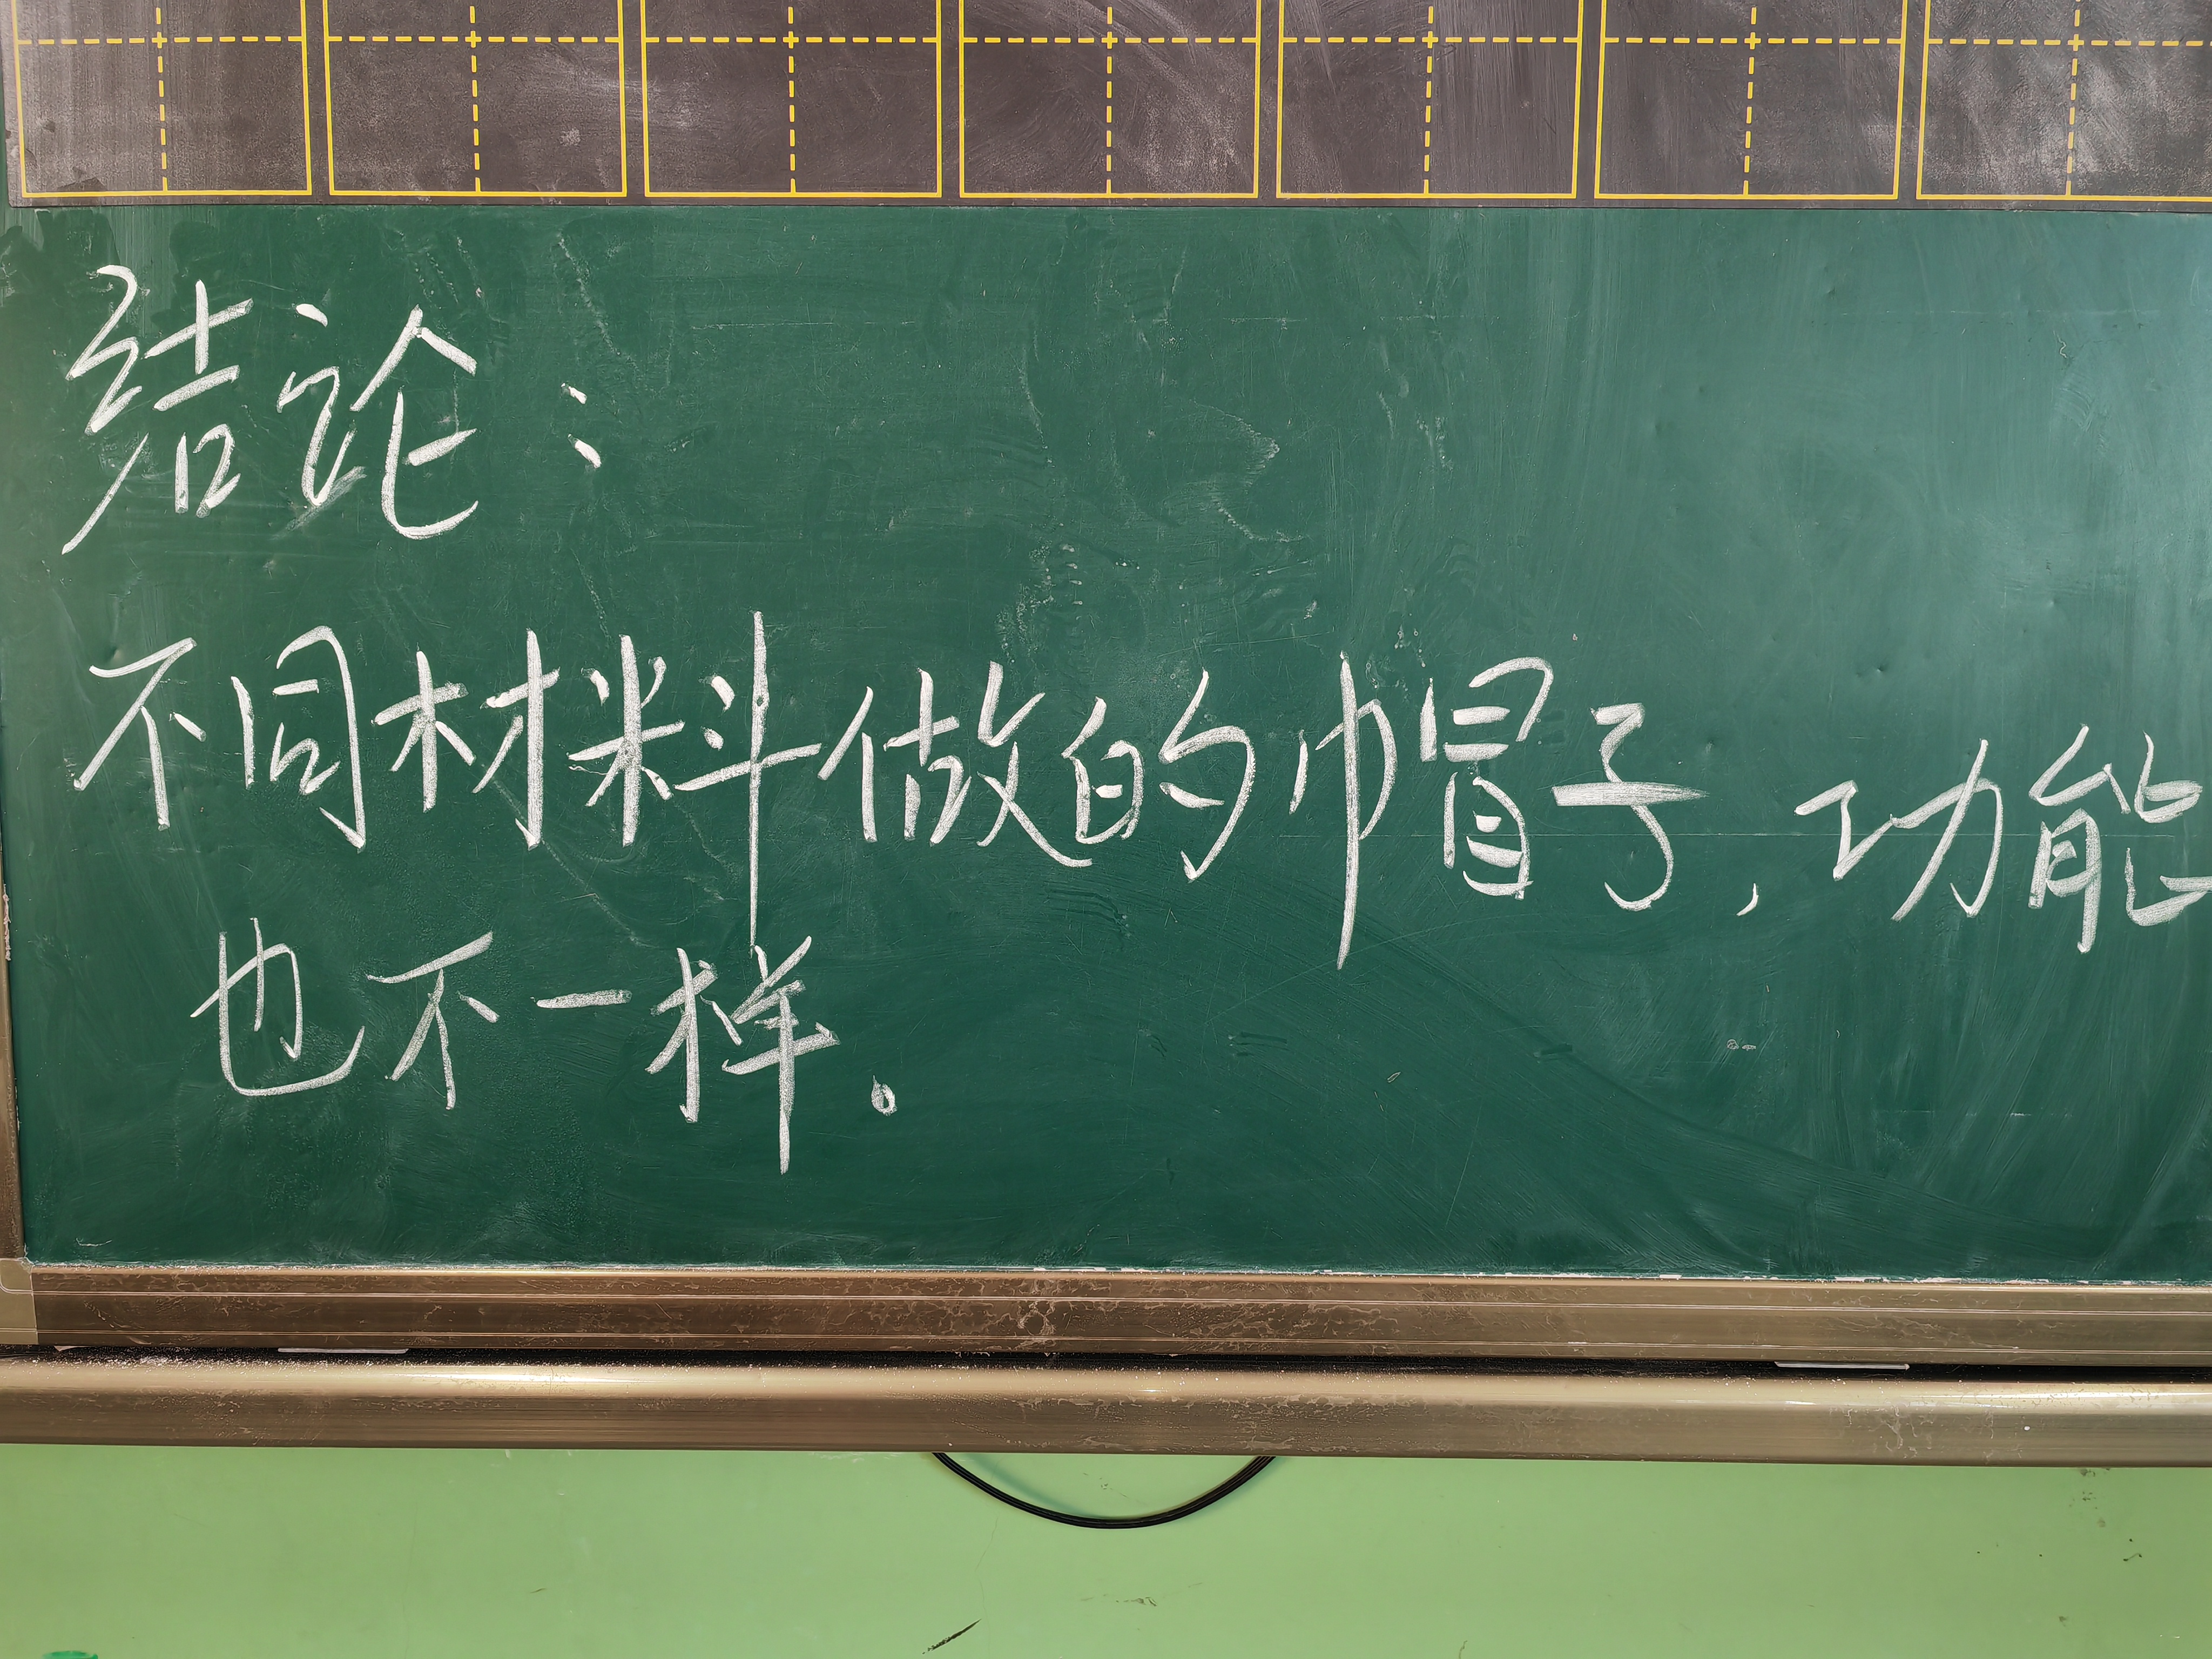 结论：
不同材料做的帽子，功能
也不一样。